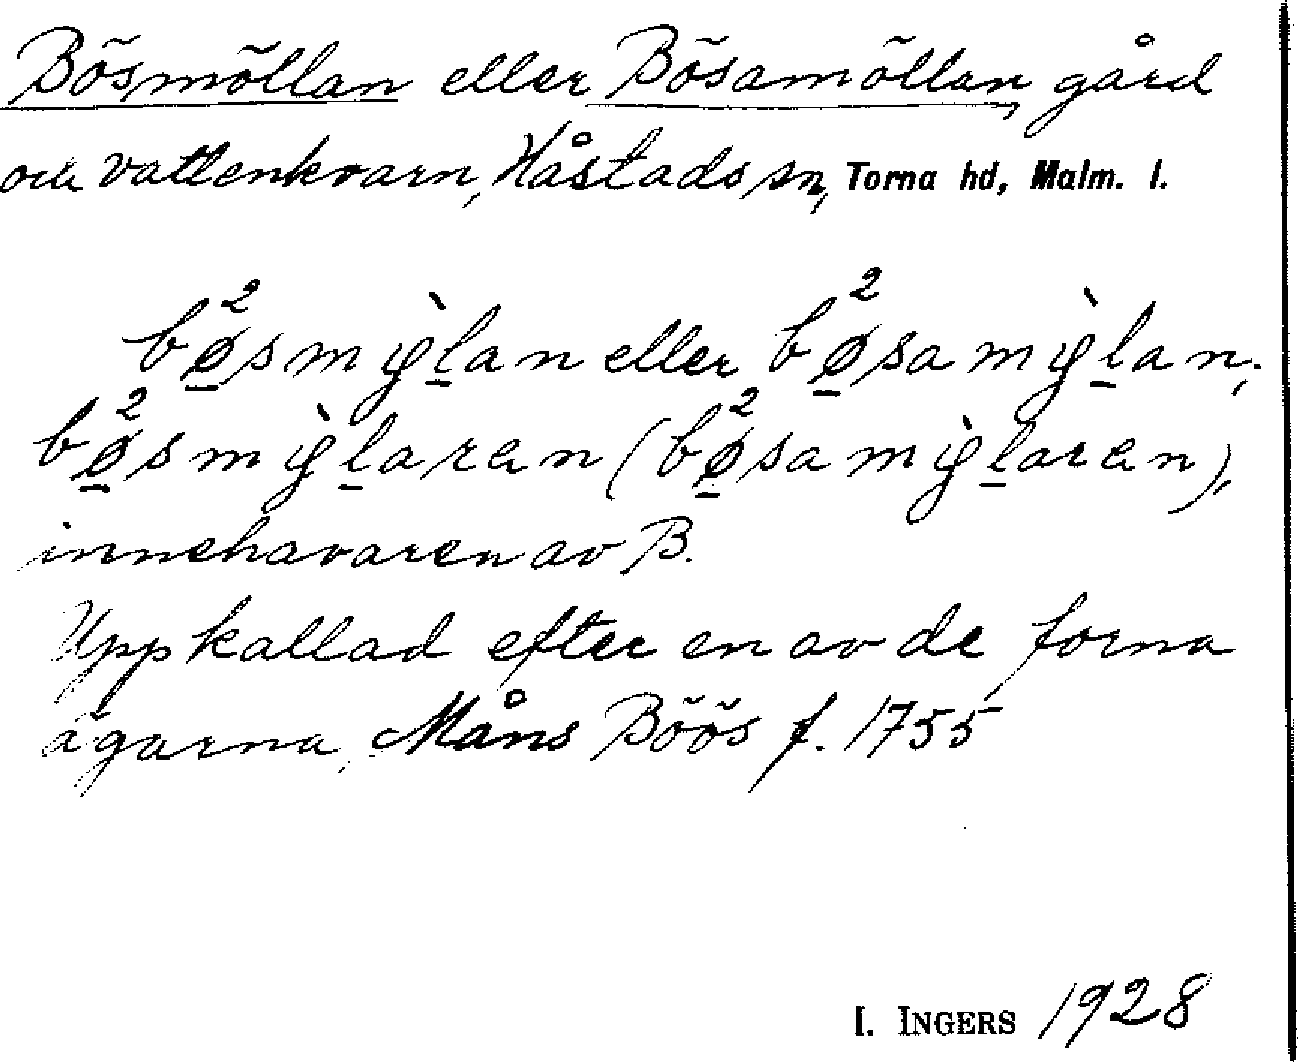 Bösmöllan eller Bösamöllan, gård
och vattenkvarn, Håstads sn, Torna hd, Malm. l.
bø̲²smỳl̲an eller bø̲²samỳl̲an;
bø̲²smỳl̲aren (bø̲²samỳl̲aren),
innehavaren av B.
Uppkallad efter en av de forna
ägarna, Måns Böös f. 1755
I. INGERS 1928